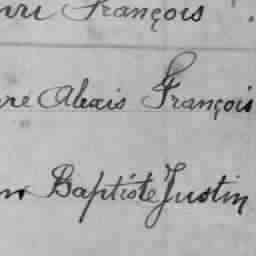 François
Alexis François
Baptiste Justin